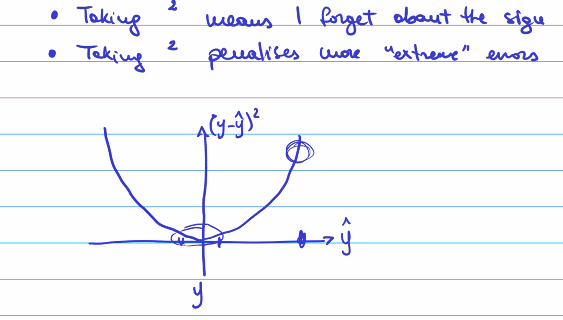 • Taking ² means I forget about the sign
• Taking ² penalises more "extreme" errors
(y-ŷ)²
ŷ
y